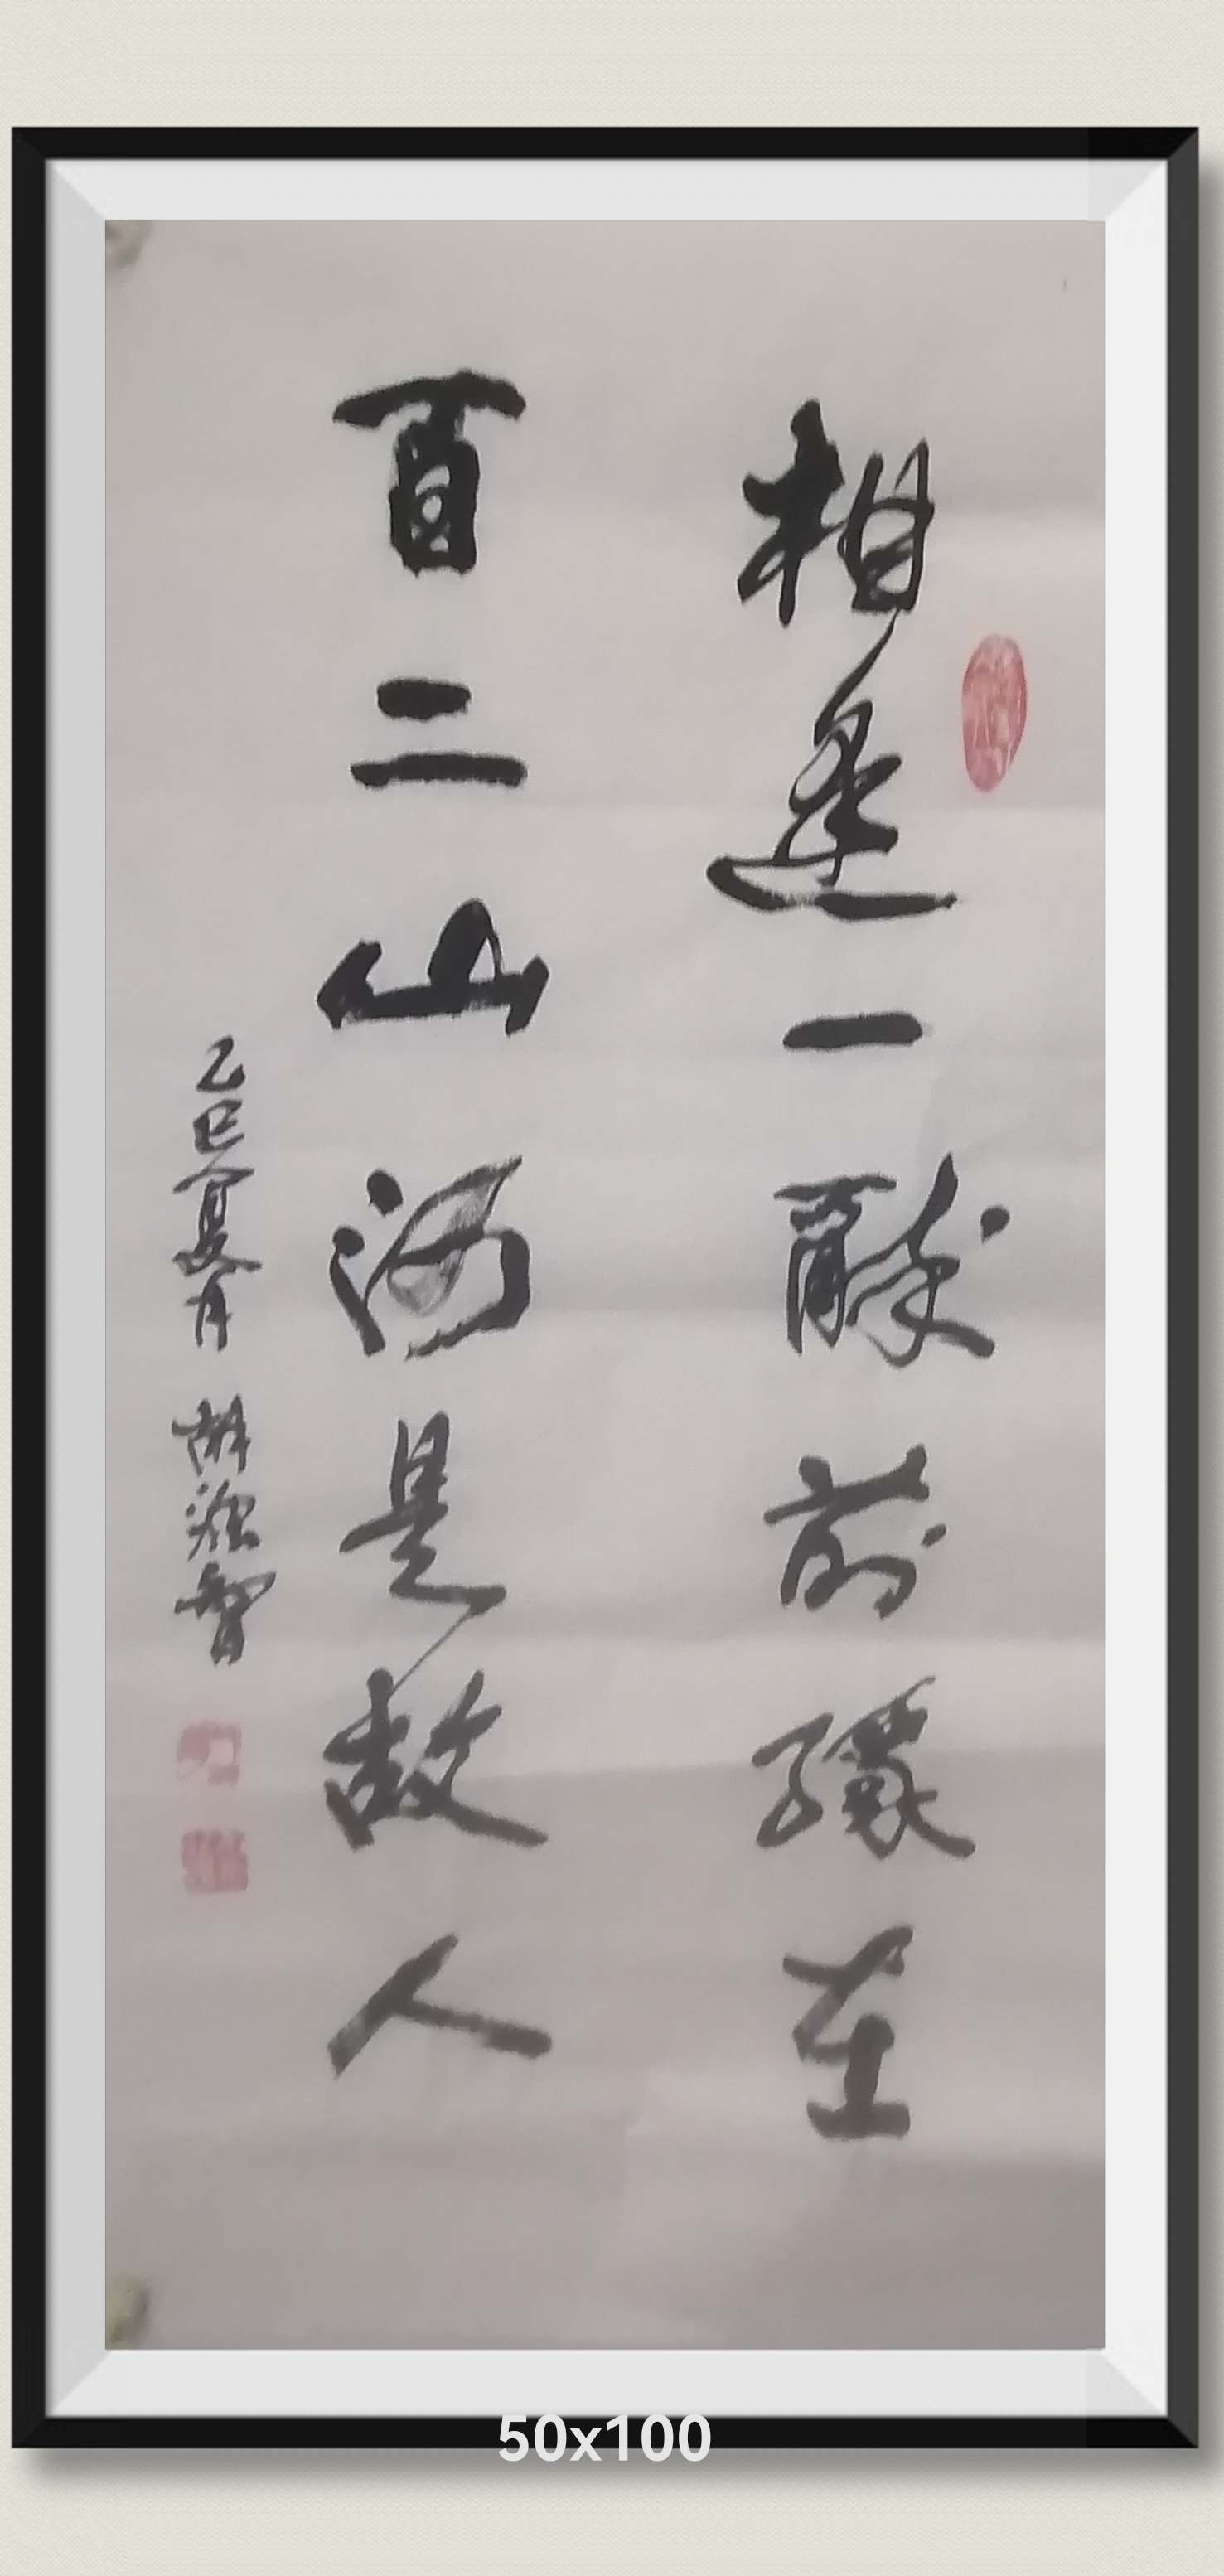 相逢一醉前緣在
百二山河是故人
乙巳夏月 胡源智
50x100